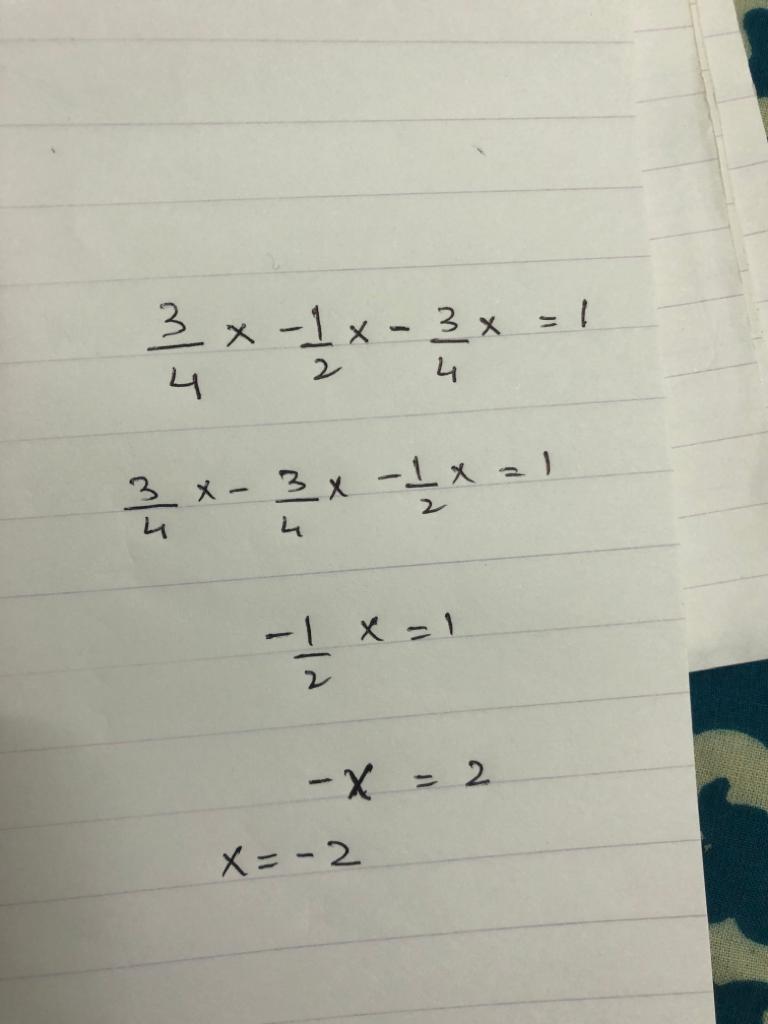 3/4 x - 1/2 x - 3/4 x = 1
3/4 x - 3/4 x - 1/2 x = 1
-1/2 x = 1
-x = 2
x = -2